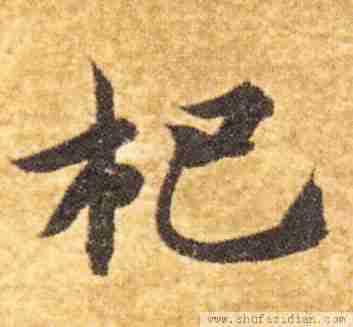 杞
www.shufazidian.com